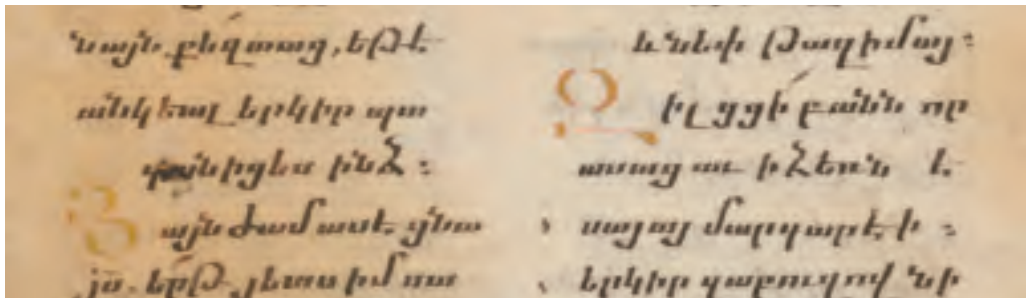 նայն քեզ տաց, եթէ
անկեալ երկիր պա
գանիցես ինձ :
Յայնժամ ասէ ցնա
յս. երթ յետս իմ սա
և նեփթաղիմայ :
Զի լցցի բանն որ
ասացաւ ի ձեռն ե
սայայ մարգարէի :
երկիր զաբուղովնի